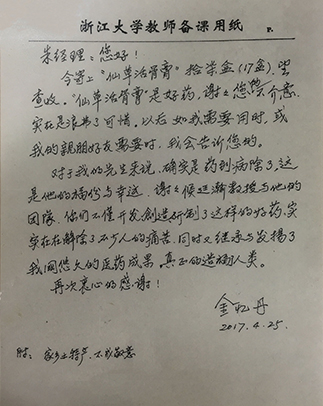 浙江大学教师备课用纸
P.
朱经理：您好！
今寄上“仙草活骨膏”拾柒盒（17盒），望
查收。“仙草活骨膏”是好药，谢谢您
实在是浪费了可惜。以后如我需要用时，或
我的亲朋好友需要时，我会告诉您的。
对于我的先生来说，确实是药到病除了，这
是他的福份与幸运。谢谢候廷瀚教授与他的
团队，他们不仅开发创造研制了这样的好药，实
实在在解除了不少人的痛苦，同时又继承与发扬了
我国悠久的医药成果，真正的造福人类。
再次衷心的感谢！
金 丹
2017.4.25.
附：家乡土特产，不成敬意